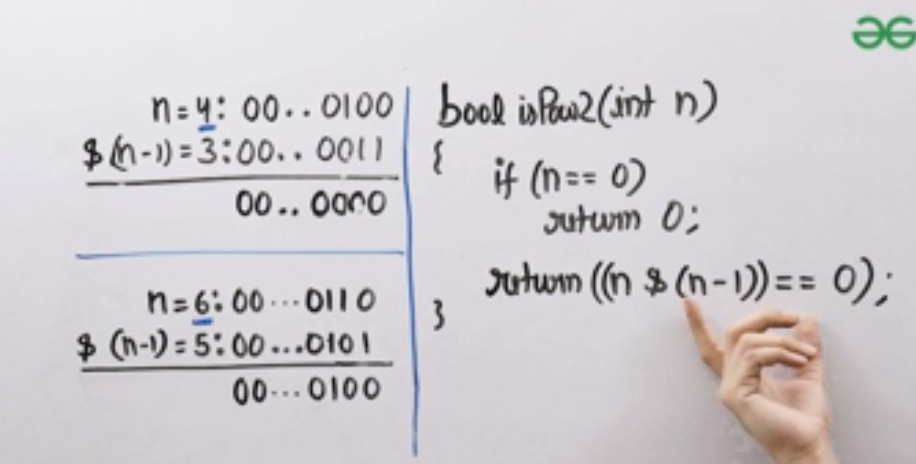 n=4: 00..0100
$(n-1)=3:00..0011
00..0000
n=6:00...0110
$ (n-1)=5:00...0101
00...0100
bool isPow2(int n)
{
if (n== 0)
return 0;
return ((n $ (n-1))== 0);
}